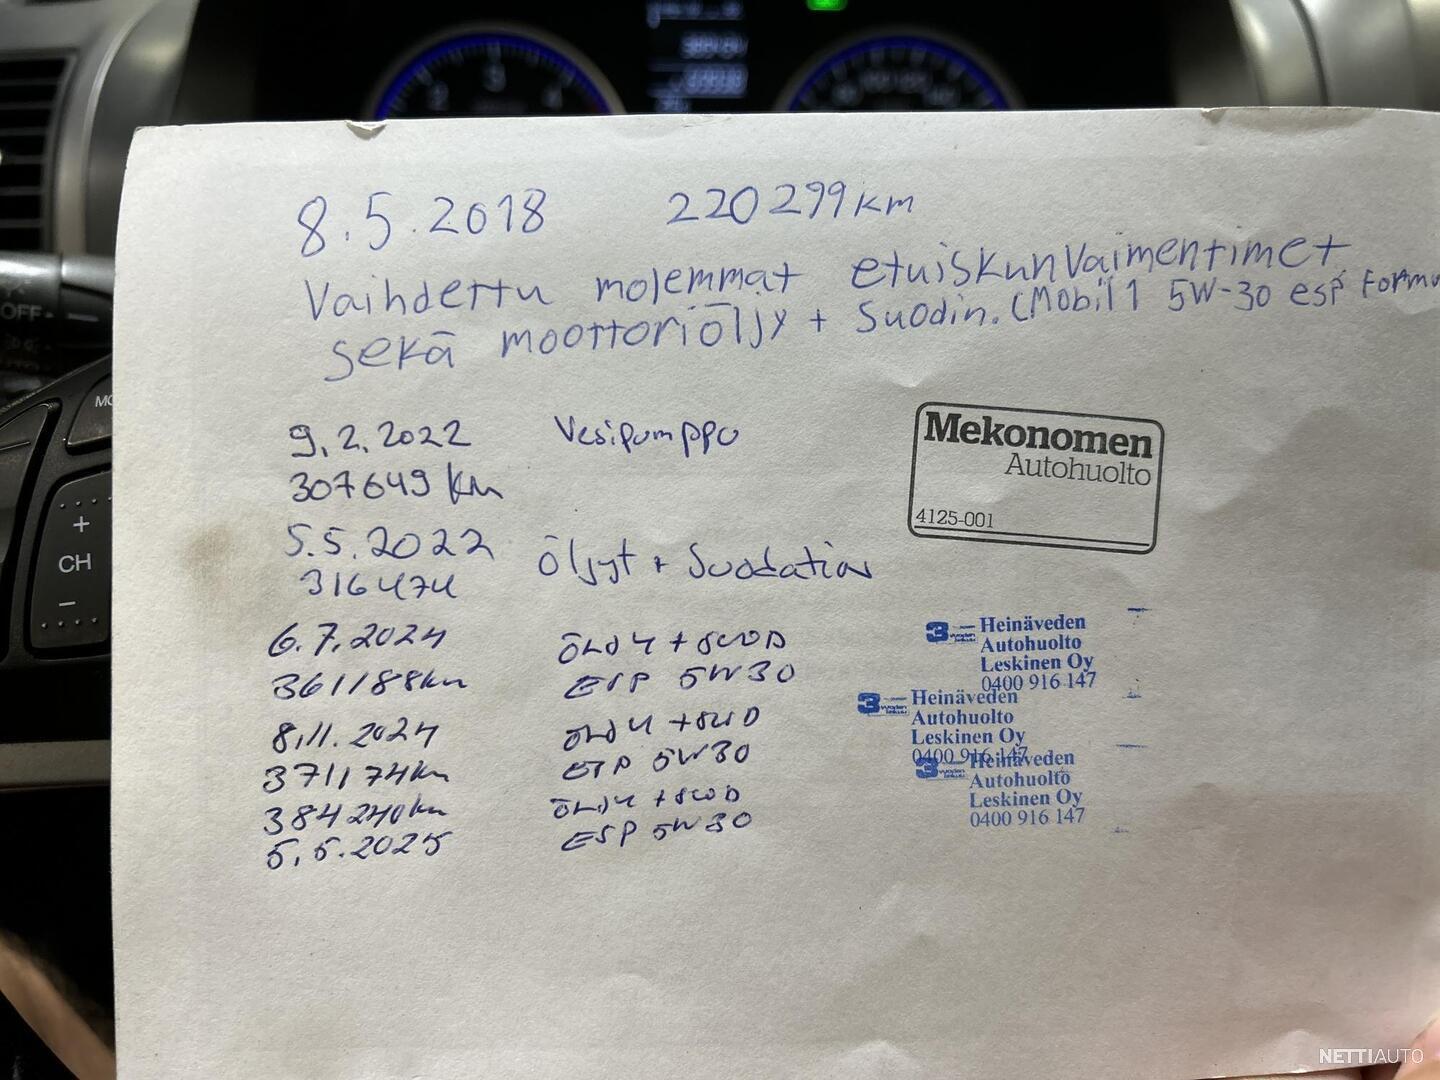 8.5.2018 220299km
Vaihdettu molemmat etuiskunvaimentimet
sekä moottoriöljy + suodin. (Mobil 1 5W-30 esp Formu
9.2.2022 Vesipumppu
307649 km
Mekonomen
Autohuolto
4125-001
5.5.2022 Öljyt + Suodatin
316474
6.7.2024 ÖLJY + SUOD
361188km ESP 5W30
3
Heinäveden
Autohuolto
Leskinen Oy
0400 916 147
8.11.2024 ÖLJY + SUOD
371174km ESP 5W30
3
Heinäveden
Autohuolto
Leskinen Oy
0400 916 147
384240km ÖLJY + SUOD
5.5.2025 ESP 5W30
3
Heinäveden
Autohuolto
Leskinen Oy
0400 916 147
OFF
MO
+
CH
-
2 3 4
NETTIAUTO